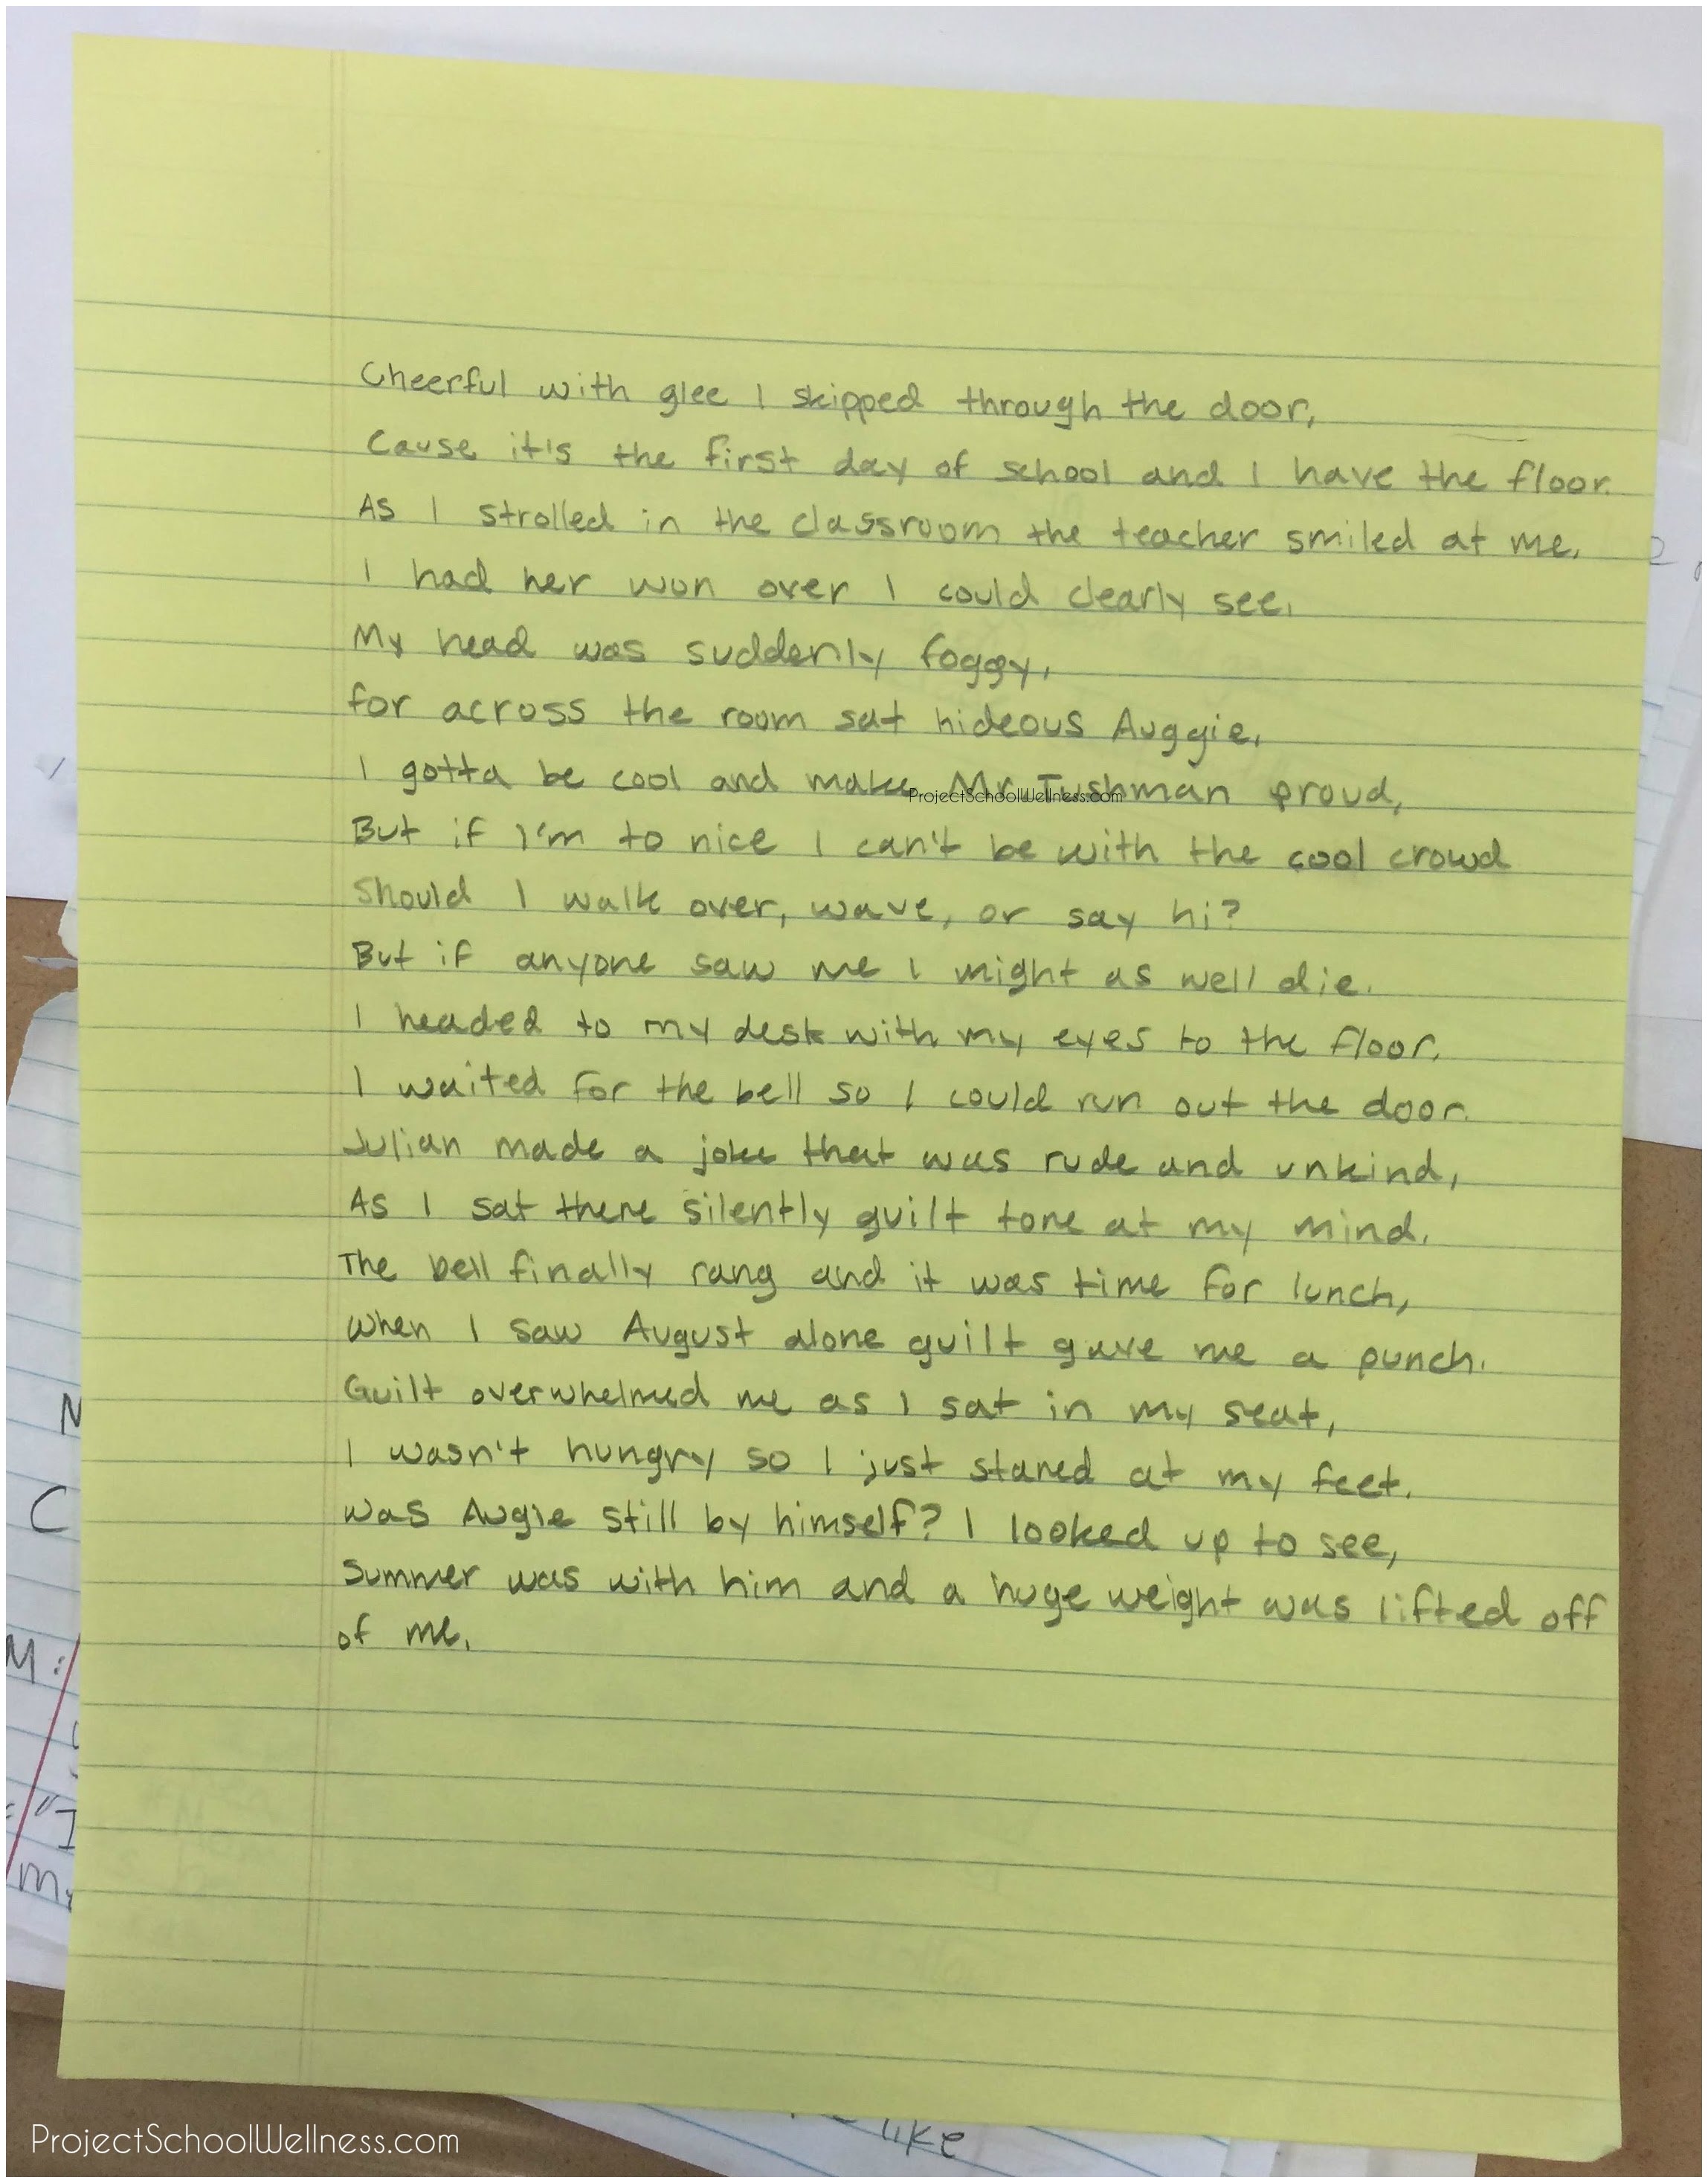 Cheerful with glee I skipped through the door,
Cause it's the first day of school and I have the floor.
As I strolled in the classroom the teacher smiled at me.
I had her won over I could clearly see.
My head was suddenly foggy,
for across the room sat hideous Auggie,
I gotta be cool and make Mr. Tushman proud,
ProjectSchoolWellness.com
But if I'm to nice I can't be with the cool crowd
Should I walk over, wave, or say hi?
But if anyone saw me I might as well die.
I headed to my desk with my eyes to the floor.
I waited for the bell so I could run out the door.
Julian made a joke that was rude and unkind,
As I sat there silently guilt tore at my mind.
The bell finally rang and it was time for lunch,
When I saw August alone guilt gave me a punch.
Guilt overwhelmed me as I sat in my seat,
I wasn't hungry so I just stared at my feet.
was Augie still by himself? I looked up to see,
Summer was with him and a huge weight was lifted off
of me.
N
C
M:
"I
My
like
ProjectSchoolWellness.com